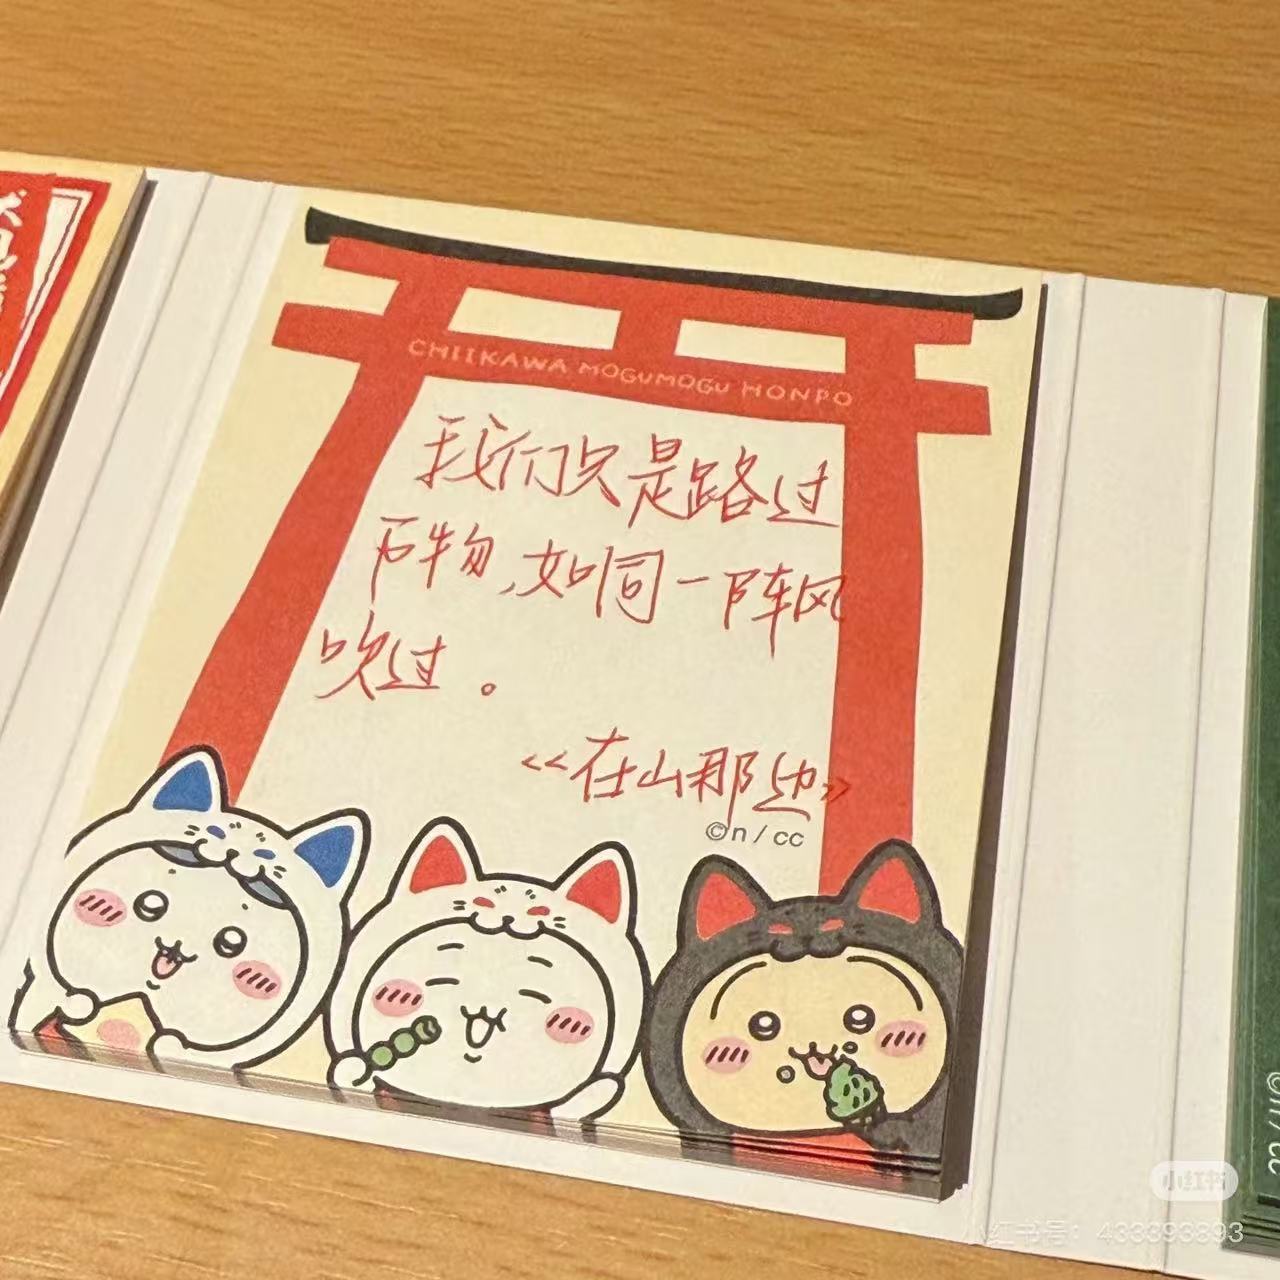 CHIIKAWA MOGUMOGU HONPO
我们只是路过
万物,如同一阵风
吹过。
<<在山那边>>
©n / cc
©n / cc
小红书
小红书号: 433393893